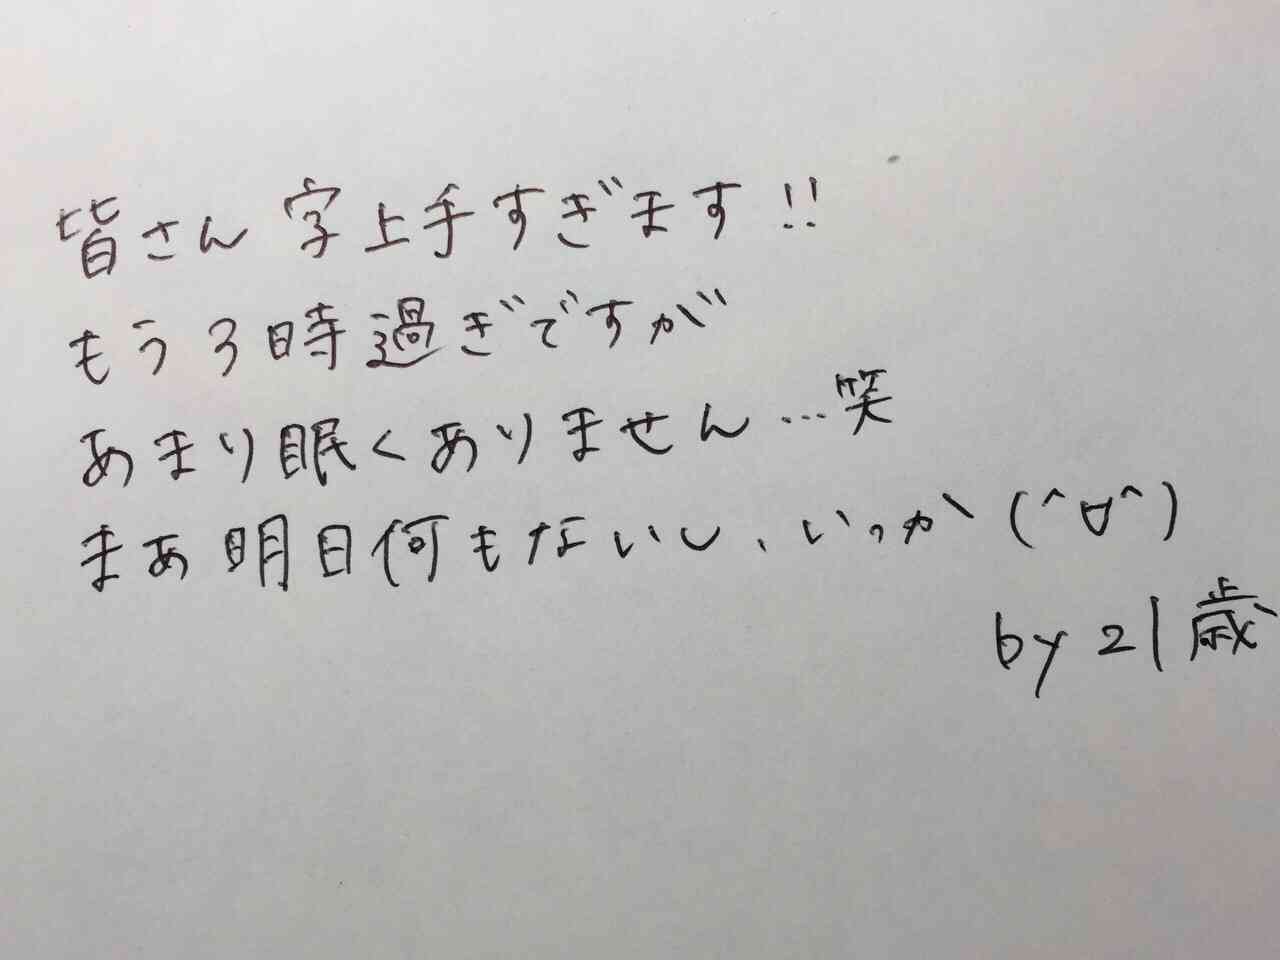 皆さん字上手すぎます!!
もう3時過ぎですが
あまり眠くありません…笑
まあ明日何もないし、いっか(^∀^)
by 21歳